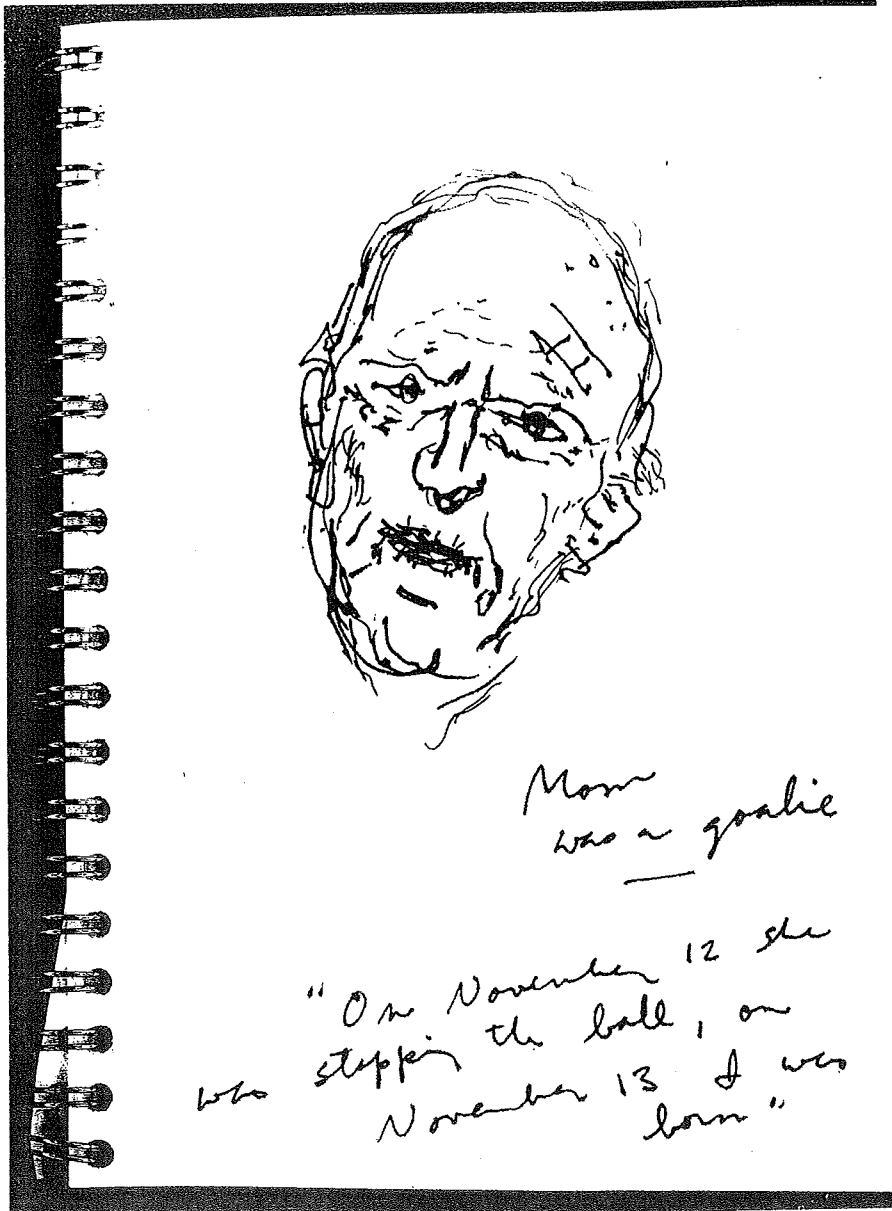 Mom
was a goalie
"On November 12 she
was stopping the ball, on
November 13 I was
born"